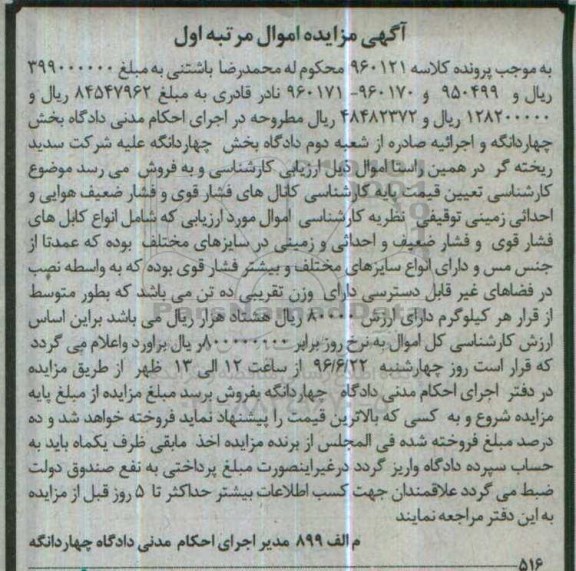 آگهی مزایده اموال مرتبه اول
به موجب پرونده کلاسه ۹۶۰۱۲۱ محکوم له محمدرضا باشتنی به مبلغ ۳۹۹۰۰۰۰۰۰
ریال و ۹۵۰۴۹۹ و ۹۶۰۱۷۰- ۹۶۰۱۷۱ نادر قادری به مبلغ ۸۴۵۴۷۹۶۲ ریال و
۱۲۸۲۰۰۰۰۰ ریال و ۴۸۴۸۲۳۷۲ ریال مطروحه در اجرای احکام مدنی دادگاه بخش
چهاردانگه و اجرائیه صادره از شعبه دوم دادگاه بخش چهاردانگه علیه شرکت سدید
ریخته گر در همین راستا اموال ذیل ارزیابی کارشناسی و به فروش می رسد موضوع
کارشناسی تعیین قیمت پایه کارشناسی کانال های فشار قوی و فشار ضعیف هوایی و
احداثی زمینی توقیفی نظریه کارشناسی اموال مورد ارزیابی که شامل انواع کابل های
فشار قوی و فشار ضعیف و احداثی و زمینی در سایزهای مختلف بوده که عمدتا از
جنس مس و دارای انواع سایزهای مختلف و بیشتر فشار قوی بوده که به واسطه نصب
در فضاهای غیر قابل دسترسی دارای وزن تقریبی ده تن می باشد که بطور متوسط
از قرار هر کیلوگرم دارای ارزش ۸۰۰۰۰ ریال هشتاد هزار ریال می باشد براین اساس
ارزش کارشناسی کل اموال به نرخ روز برابر ۸۰۰۰۰۰۰۰۰ر یال براورد واعلام می گردد
که قرار است روز چهارشنبه ۹۶/۶/۲۲ از ساعت ۱۲ الی ۱۳ ظهر از طریق مزایده
در دفتر اجرای احکام مدنی دادگاه چهاردانگه بفروش برسد مبلغ مزایده از مبلغ پایه
مزایده شروع و به کسی که بالاترین قیمت را پیشنهاد نماید فروخته خواهد شد و ده
درصد مبلغ فروخته شده فی المجلس از برنده مزایده اخذ مابقی ظرف یکماه باید به
حساب سپرده دادگاه واریز گردد درغیراینصورت مبلغ پرداختی به نفع صندوق دولت
ضبط می گردد علاقمندان جهت کسب اطلاعات بیشتر حداکثر تا ۵ روز قبل از مزایده
به این دفتر مراجعه نمایند
م الف ۸۹۹ مدیر اجرای احکام مدنی دادگاه چهاردانگه
۵۱۶